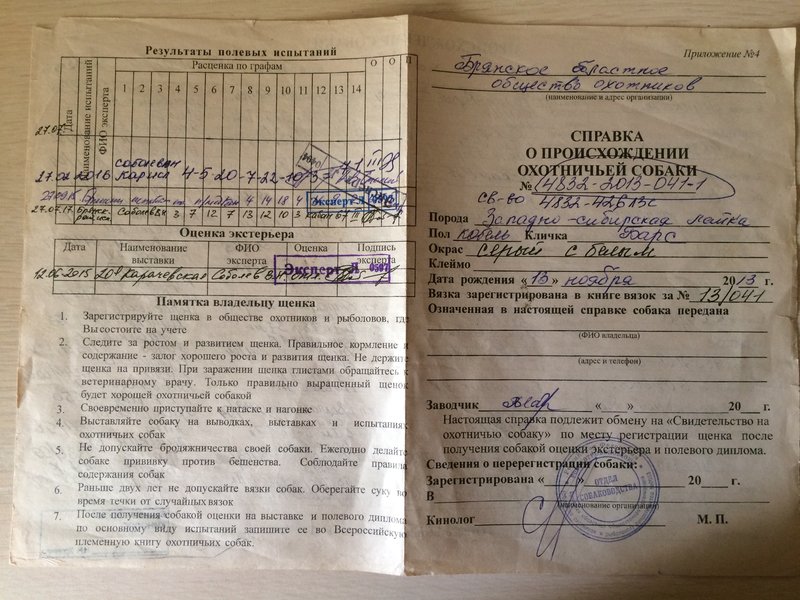 Результаты полевых испытаний
Дата
Наименование испытаний
ФИО эксперта
Расценка по графам
О О П
1 2 3 4 5 6 7 8 9 10 11 12 13 14
27.07
27.02.2016 Карисл 4-5-20-7-22-10-3
4 14 18 4
Эксперт
27.07.17. Соболев 3 7 12 7 13 12 10 3
Оценка экстерьера
Дата
Наименование выставки
ФИО эксперта
Оценка
Подпись эксперта
.06.2015 20я Карачевская Соболев
Эксперт
Памятка владельцу щенка
1. Зарегистрируйте щенка в обществе охотников и рыболовов, где
Вы состоите на учете
2. Следите за ростом и развитием щенка. Правильное кормление и
содержание - залог хорошего роста и развития щенка. Не держите
щенка на привязи. При заражении щенка глистами обращайтесь к
ветеринарному врачу. Только правильно выращенный щенок
будет хорошей охотничьей собакой
3. Своевременно приступайте к натаске и нагонке
4. Выставляйте собаку на выводках, выставках и испытаниях
охотничьих собак
5. Не допускайте бродяжничества своей собаки. Ежегодно делайте
собаке прививку против бешенства. Соблюдайте правила
содержания собак
6. Раньше двух лет не допускайте вязки собак. Оберегайте суку во
время течки от случайных вязок
7. После получения собакой оценки на выставке и полевого диплома
по основному виду испытаний запишите ее во Всероссийскую
племенную книгу охотничьих собак.
Приложение №4
Брянское областное
общество охотников
(наименование и адрес организации)
СПРАВКА
О ПРОИСХОЖДЕНИИ
ОХОТНИЧЬЕЙ СОБАКИ
№ 4832-2013-041-1
св-во 4832-42613с
Порода Западно-сибирская лайка
Пол кобель Кличка Барс
Окрас серый с белым
Клеймо
Дата рождения «13» ноября 2013 г.
Вязка зарегистрирована в книге вязок за № 13/041
Означенная в настоящей справке собака передана
(ФИО владельца)
(адрес и телефон)
Заводчик « » 20 г.
Настоящая справка подлежит обмену на «Свидетельство на
охотничью собаку» по месту регистрации щенка после
получения собакой оценки экстерьера и полевого диплома.
Сведения о перерегистрации собаки:
Зарегистрирована « » 20 г.
В
(наименование организации)
Кинолог М. П.
ОТДЕЛ
СОБАКОВОДСТВА